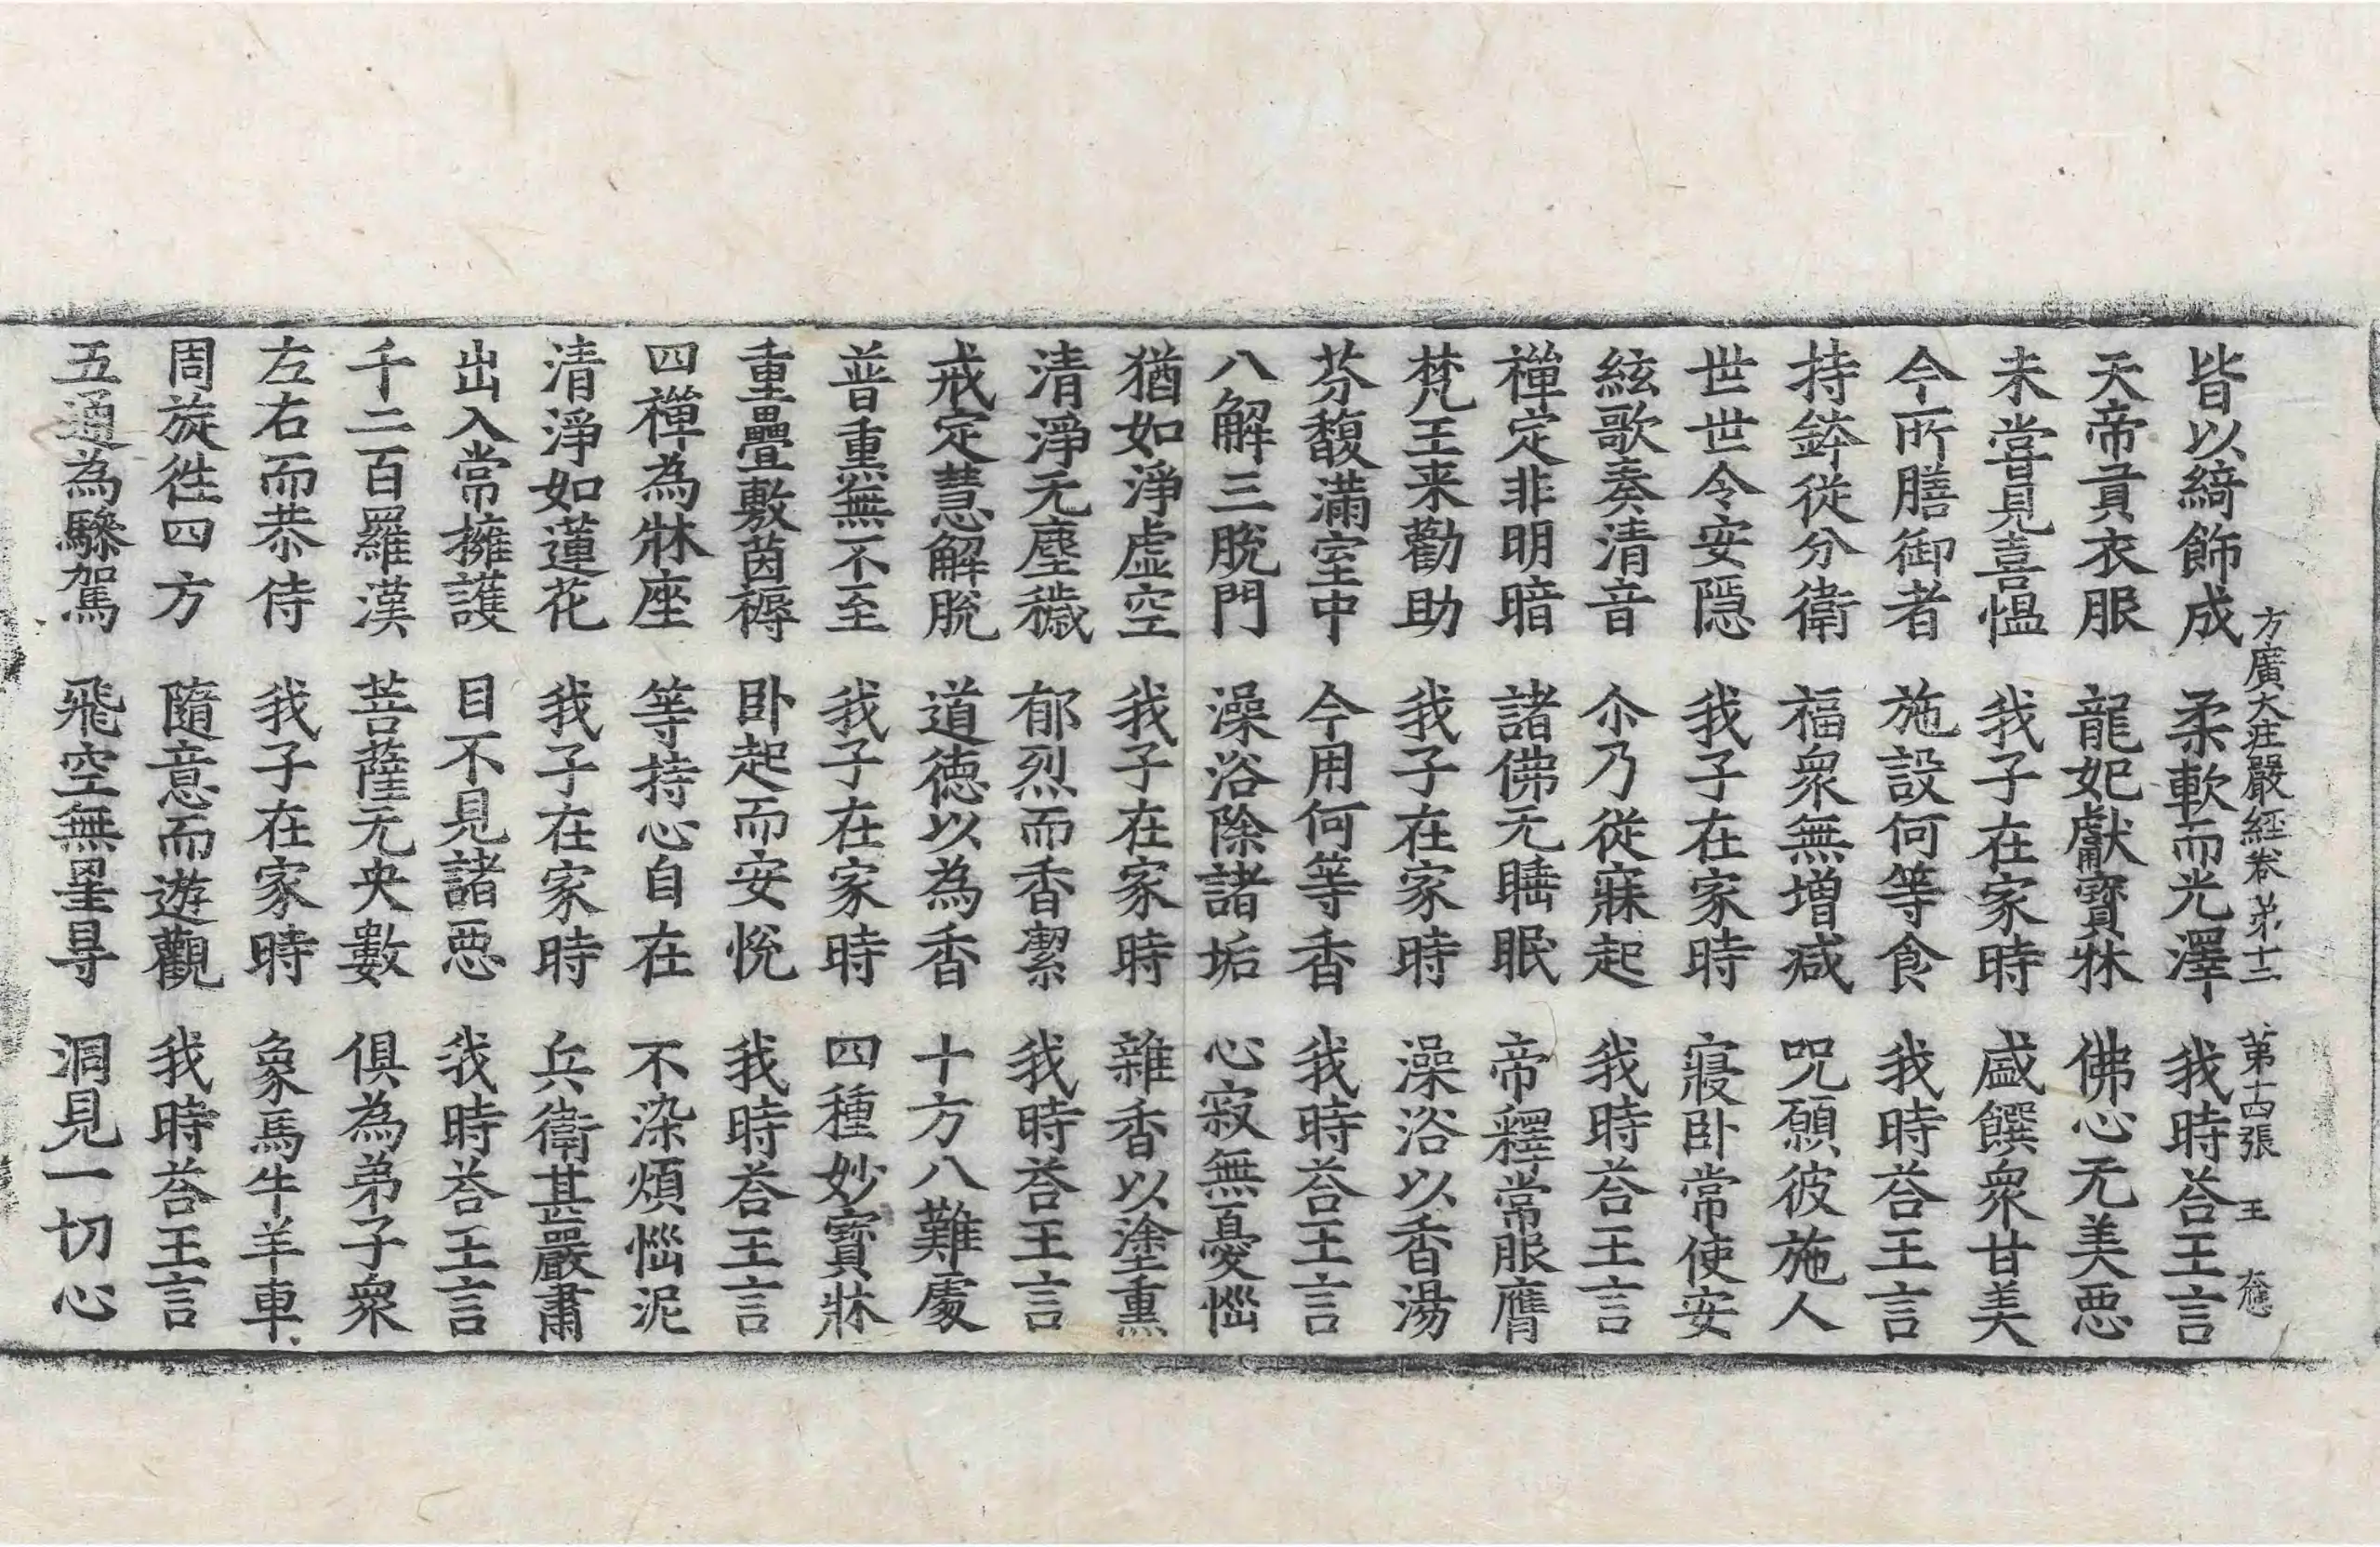 方廣大莊嚴經卷第十二 第十四張 王
皆以綺飾成 柔軟而光澤 我時荅王言
天帝貢衣服 龍妃獻寶牀 佛心无美惡
未甞見喜愠 我子在家時 盛饌衆甘美
今所膳御者 施設何等食 我時荅王言
持鉢從分衛 福衆無增減 呪願彼施人
世世令安隱 我子在家時 寢卧常使安
絃歌奏清音 尒乃從寐起 我時荅王言
禪定非明暗 諸佛无睡眠 帝釋常服膺
梵王来勸助 我子在家時 澡浴以香湯
芬馥滿室中 今用何等香 我時荅王言
八解三脫門 澡浴除諸垢 心寂無憂惱
猶如淨虛空 我子在家時 雜香以塗熏
清淨无塵穢 郁烈而香潔 我時荅王言
戒定慧解脫 道德以為香 十方八難處
普熏無不至 我子在家時 四種妙寶牀
重疊敷茵褥 卧起而安悅 我時荅王言
四禪為牀座 等持心自在 不染煩惱泥
清淨如蓮花 我子在家時 兵衛甚嚴肅
出入常擁護 目不見諸惡 我時荅王言
千二百羅漢 菩薩无央數 俱為弟子衆
左右而恭侍 我子在家時 象馬牛羊車
周旋往四方 隨意而遊觀 我時荅王言
五通為驂駕 飛空無罣㝵 洞見一切心